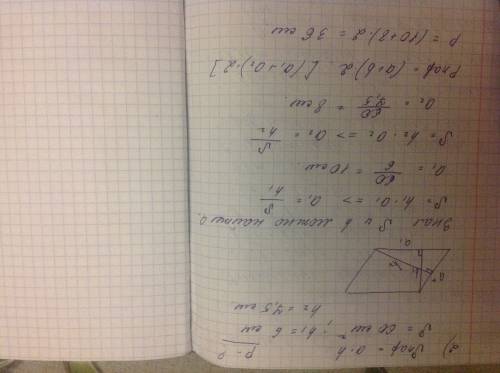 2) Sпар = a·h P - ?
S = 60 см², h₁ = 6 см
h₂ = 7,5 см
a₁
a₂
h₁
h₂
Зная S и h можно найти a.
S = h₁ · a₁ => a₁ = S/h₁
a₁ = 60/6 = 10 см.
S = h₂ · a₂ => a₂ = S/h₂
a₂ = 60/7,5 = 8 см.
Pпар = (a+b)·2 [(a₁+a₂)·2]
P = (10+8)·2 = 36 см